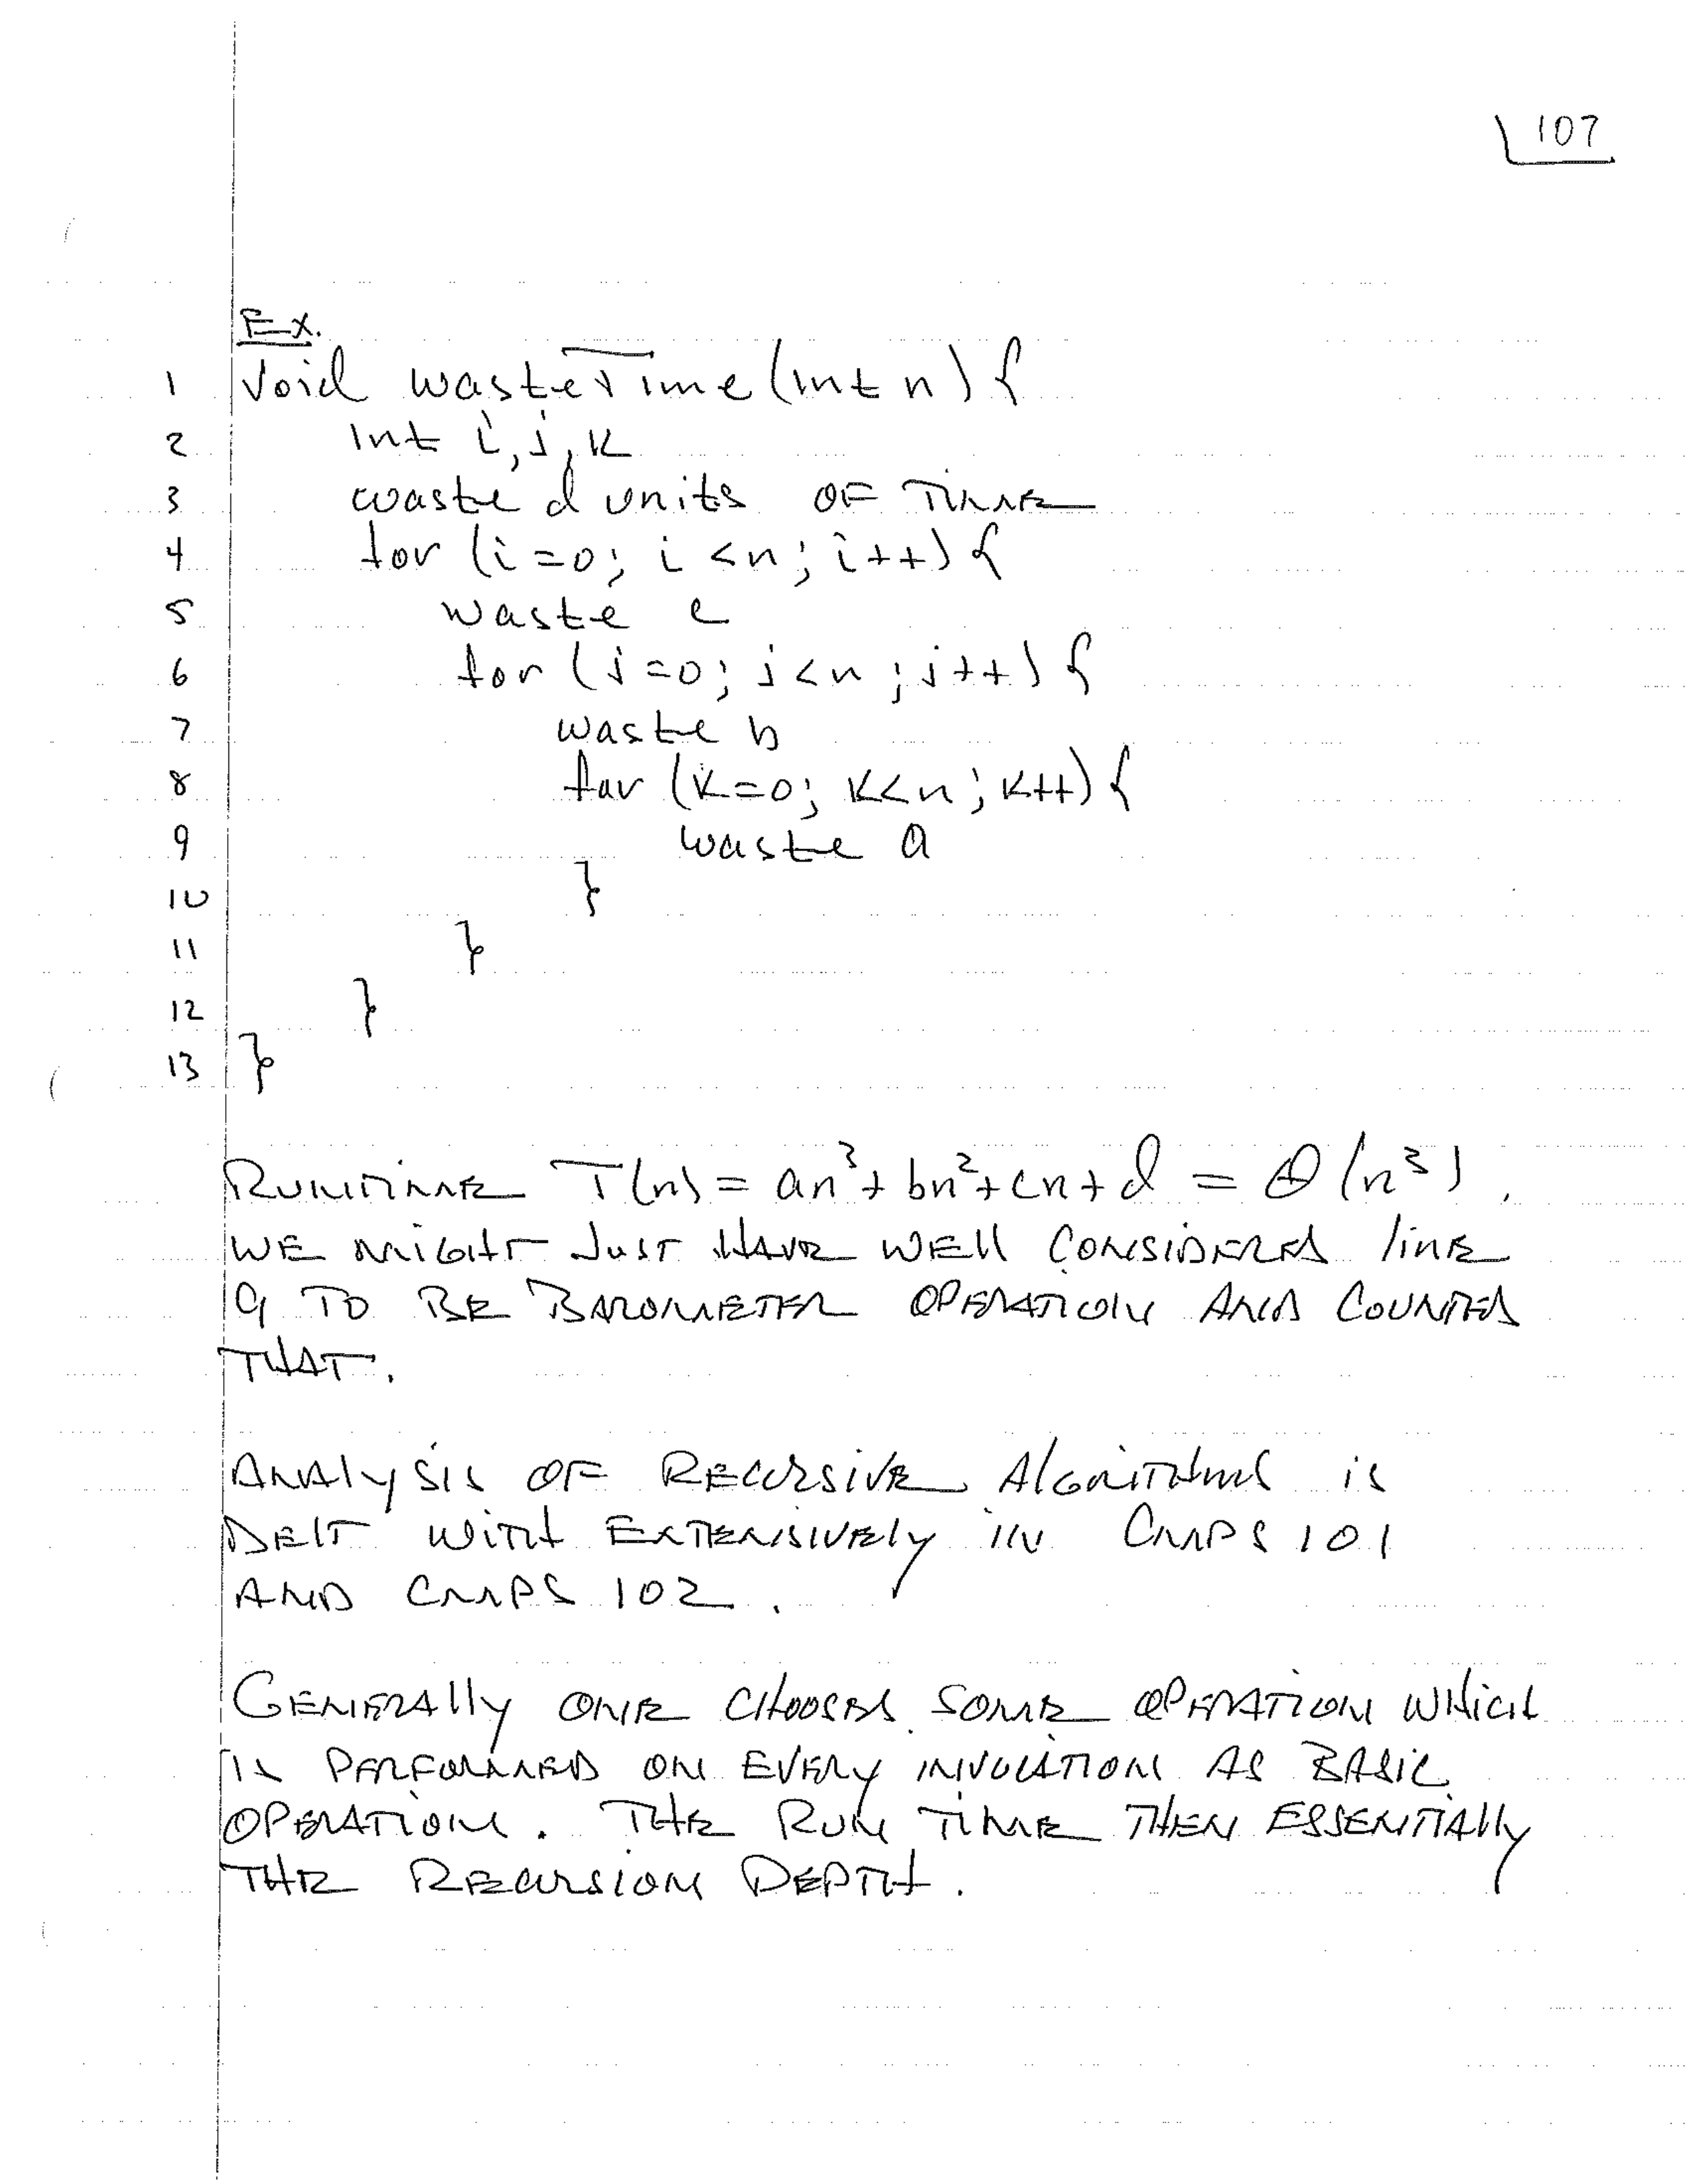 107
Ex.
1 Void wasteTime(int n){
2 int i,j,k
3 waste d units OF TIME
4 for (i=0; i<n; i++){
5 waste c
6 for (j=0; j<n; j++){
7 waste b
8 for (k=0; k<n; k++){
9 waste a
10 }
11 }
12 }
13 }
RUNTIME T(n) = an³+bn²+cn+d = Θ(n³).
WE MIGHT JUST HAVE WELL CONSIDERED line
9 TO BE BAROMETER OPERATION AND COUNTED
THAT.
ANALYSIS OF RECURSIVE ALGORITHMS is
DELT WITH EXTENSIVELY IN CMPS 101
AND CMPS 102.
GENERALLY ONE CHOOSES SOME OPERATION WHICH
IS PERFORMED ON EVERY INVOCATION AS BASIC
OPERATION. THE RUN TIME THEN ESSENTIALLY
THE RECURSION DEPTH.